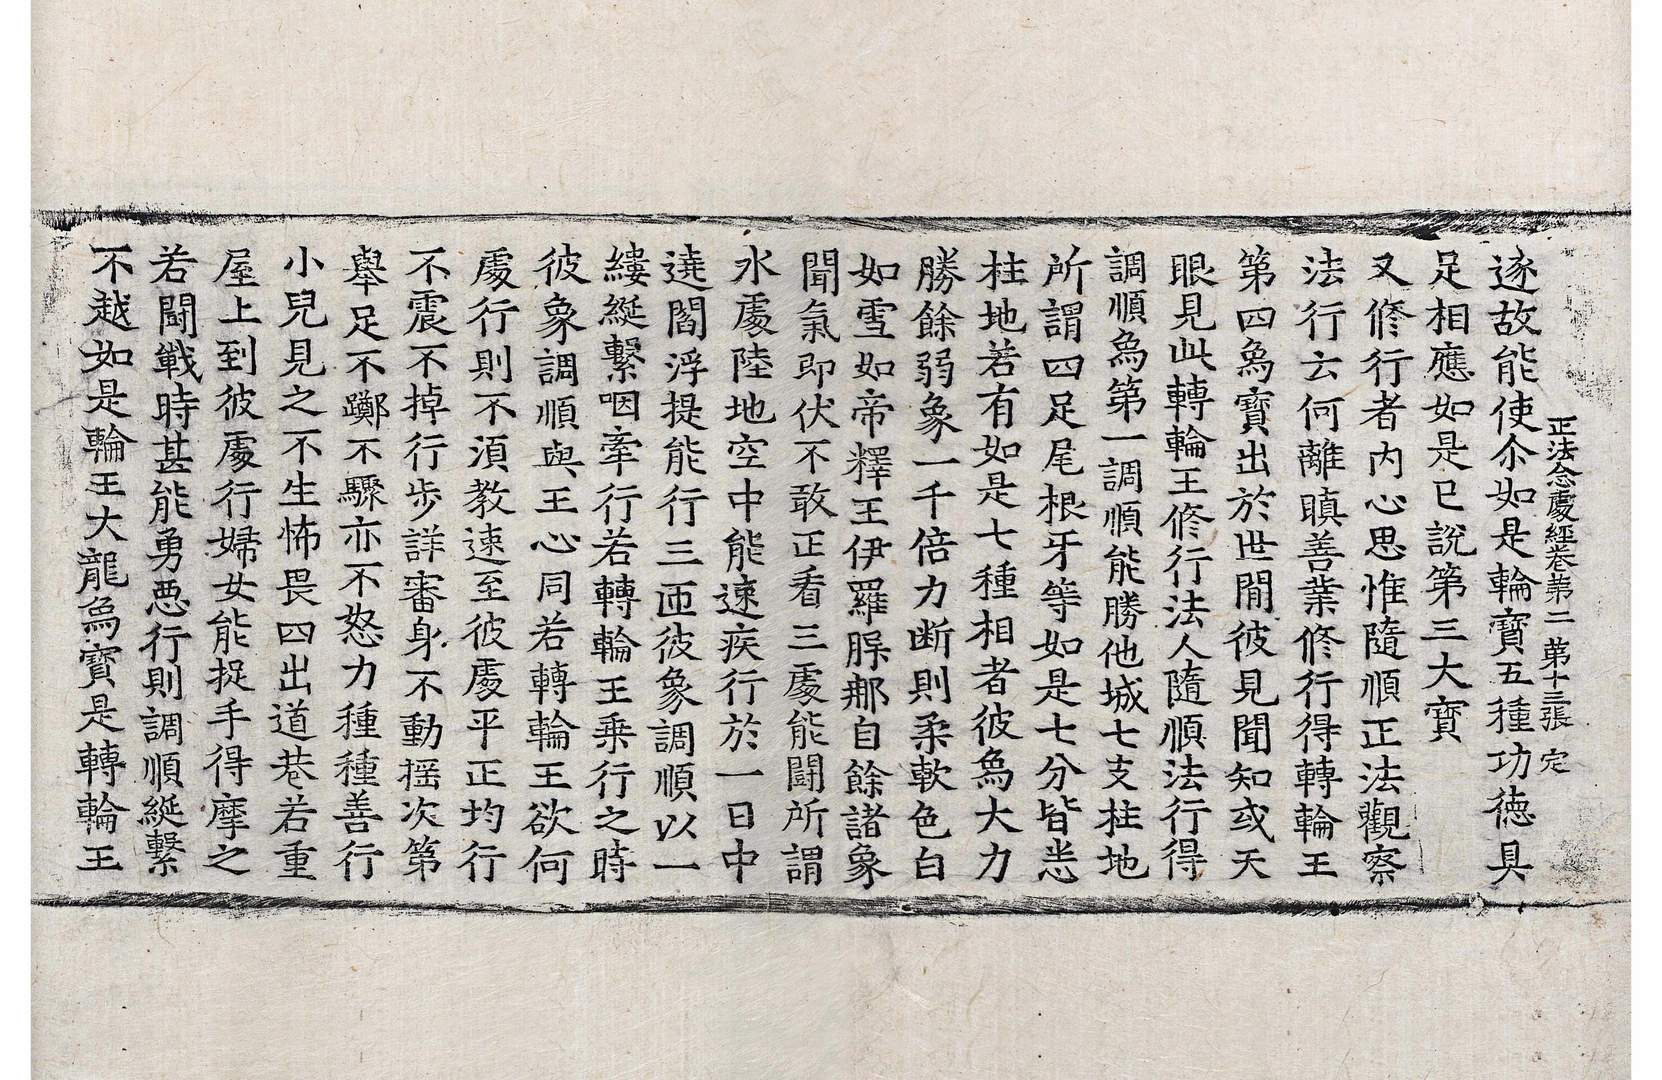 正法念處經卷第二 第十三張 定
逐故能使尒如是輪寶五種功德具
足相應如是已說第三大寶
又修行者內心思惟隨順正法觀察
法行云何離瞋善業修行得轉輪王
第四爲寶出於世閒彼見聞知或天
眼見此轉輪王修行法人隨順法行得
調順爲第一調順能勝他城七支柱地
所謂四足尾根牙等如是七分皆悉
柱地若有如是七種相者彼爲大力
勝餘弱象一千倍力断則柔軟色白
如雪如帝釋王伊羅䐗那自餘諸象
聞氣即伏不敢正看三處能鬪所謂
水處陸地空中能速疾行於一日中
遶閻浮提能行三匝彼象調順以一
縷綖繫咽牽行若轉輪王乘行之時
彼象調順與王心同若轉輪王欲何
處行則不湏教速至彼處平正均行
不震不掉行步詳審身不動摇次第
舉足不躑不驟亦不怒力種種善行
小兒見之不生怖畏四出道巷若重
屋上到彼處行婦女能捉手得摩之
若鬪戰時甚能勇惡行則調順綖繫
不越如是輪王大龍爲寶是轉輪王